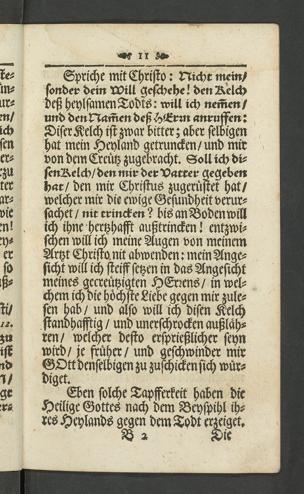 11
Spriche mit Christo: Nicht mein/
sonder dein Will geschehe! den Kelch
deß heylsamen Todts: will ich nem̃en/
und den Nam̃en deß HErrn anruffen:
Diser Kelch ist zwar bitter; aber selbigen
hat mein Heyland getruncken/ und mir
von dem Creütz zugebracht. Soll ich di-
sen Kelch/ den mir der Vatter gegeben
hat/ den mir Christus zugerüstet hat/
welcher mir die ewige Gesundheit verur-
sachet/ nit trincken? bis an Boden will
ich ihne hertzhafft außtrincken! entzwi-
schen will ich meine Augen von meinem
Artzt Christo nit abwenden: mein Ange-
sicht will ich steiff setzen in das Angesicht
meines gecreutzigten HErens/ in wel-
chem ich die höchste Liebe gegen mir zule-
sen hab/ und also will ich disen Kelch
standhafftig/ und unerschrocken außläh-
ren/ welcher desto ersprießlicher seyn
wird/ je früher/ und geschwinder mir
GOtt denselbigen zu zuschicken sich wür-
diget.
Eben solche Tapfferkeit haben die
Heilige Gottes nach dem Beyspihl ih-
res Heylands gegen dem Todt erzeiget.
B 2 Die